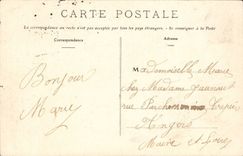 CARTE POSTALE
La correspondance au recto n'est pas acceptée par tous les pays étrangers. - Se renseigner à la Poste
Correspondance
Adresse
Bonjour
Marie
Mademoiselle Marie
chez Madame
rue
Angers
Maine et Loire